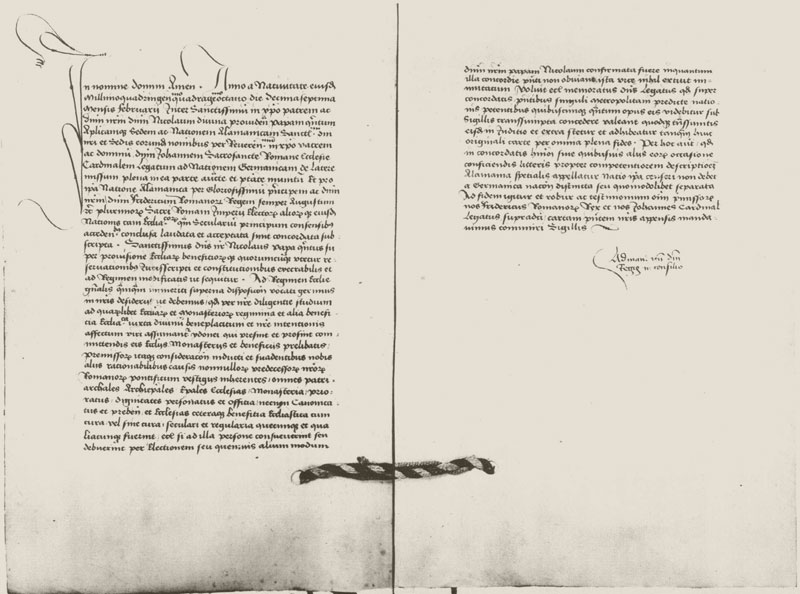 In nomine domini Amen. Anno a Nativitate eiusd
Millmoquadringen quadragesoctavo die decima septima
Mensis februarii Inter Sanctissimum in xpo patrem ac
dnm nrm dnm Nicolaum divina providen papam quintum
Aplicamq Sedem ac Nationem Alamanicam Sanct dni
nri et Sedis eorund nomibus per Reveren in xpo patrem
ac dominu dnm Johannem Sacrosancte Romane Ecclesie
Cardinalem Legatum ad Nationem Germanicam de latere
missum plena mea parte aucte et pcate muntu et pro
ipa Natione Alamanica per gloriosissimu principem ac dnm
nrm dnm fridericum Romanorz Regem semper Augustum
ac plurimorz Sacre Romani Imperii Electorz aliorz eiusd
Nationis tam Ecclia Secularium principum consensibz
acceden conclusa laudata et acceptata sunt concordata sub
scripta. Sanctissimus dns nr Nicolaus Papa quintus su
per provisione Ecclarz beneficiorz quorumcuq utetur re
servationibz Jurisscripti et constitutionibus execrabilis et
ad Regimen modificatis ut sequetur. Ad Regimen Ecclie
gnalis quaqm immeriti superna dispositioe vocati gerimus
in nris desideriis ut debemus qd per nre diligentie studium
ad quarzlibet Ecclarz et Monasteriorz regimina et alia benefi
cia Ecclia iuxta divinu beneplacitum et nre intentionis
affectum viri assumant ydonei qui presint et prosint com
mittendis eis Ecclis Monasteriis et beneficiis prelibatis
Premissorz itaq consideracon inducti et suadentibus nobis
aliis rationabilibus causis nonnullorz predecessorz nrorz
Romanorz pontificum vestigiis inherentes omnes patri
archales Archiepales Epales Ecclesias Monasteria prio
ratus dignitates personatus et officia necnon Canonica
tus et preben et Ecclesias ceteraq beneficia Ecclastica cum
cura vel sine cura seculari et regularia quecunq et qua
liacunq fuerint et si ad illa persone consueverint seu
debuerint per Electionem seu quemvis alium modum
dnm nrm papam Nicolaum confirmata fuere inquantum
illa concordie pnti non obviant ista vice nihil extitit im
mutatum Voluit et memoratus dns Legatus qd super
concordatis pntibus singuli Metropolitani predicte natio
nis petentibus quibuscunq quotum opus eis videbitur sub
Sigillis transsumpta concedere valeant quodq transsumtis
eisd in Juditio et extra stetur et adhibeatur tanqm huic
originali carte per omnia plena fides. Per hoc aut qd
in concordatis huiusmoi sine quibusuis aliis eorz occasione
conficiendis litteris propter competentiorem descriptionem
Alamania spetialis appellatur natio ipa censeri non debet
a Germanica nacion distincta seu quomodolibet separata
Ad fidem igitur et robur ac testimonium oim pmissorz
nos fridericus Romanorz Rex et nos Johannes Cardinal
Legatus supradci cartam pntem nris appensis manda
vimus communiri Sigillis
Ad man dni
Regis in consilio